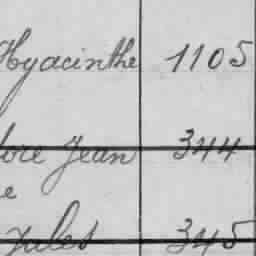 Hyacinthe 1105
Jean 344
Jules 345